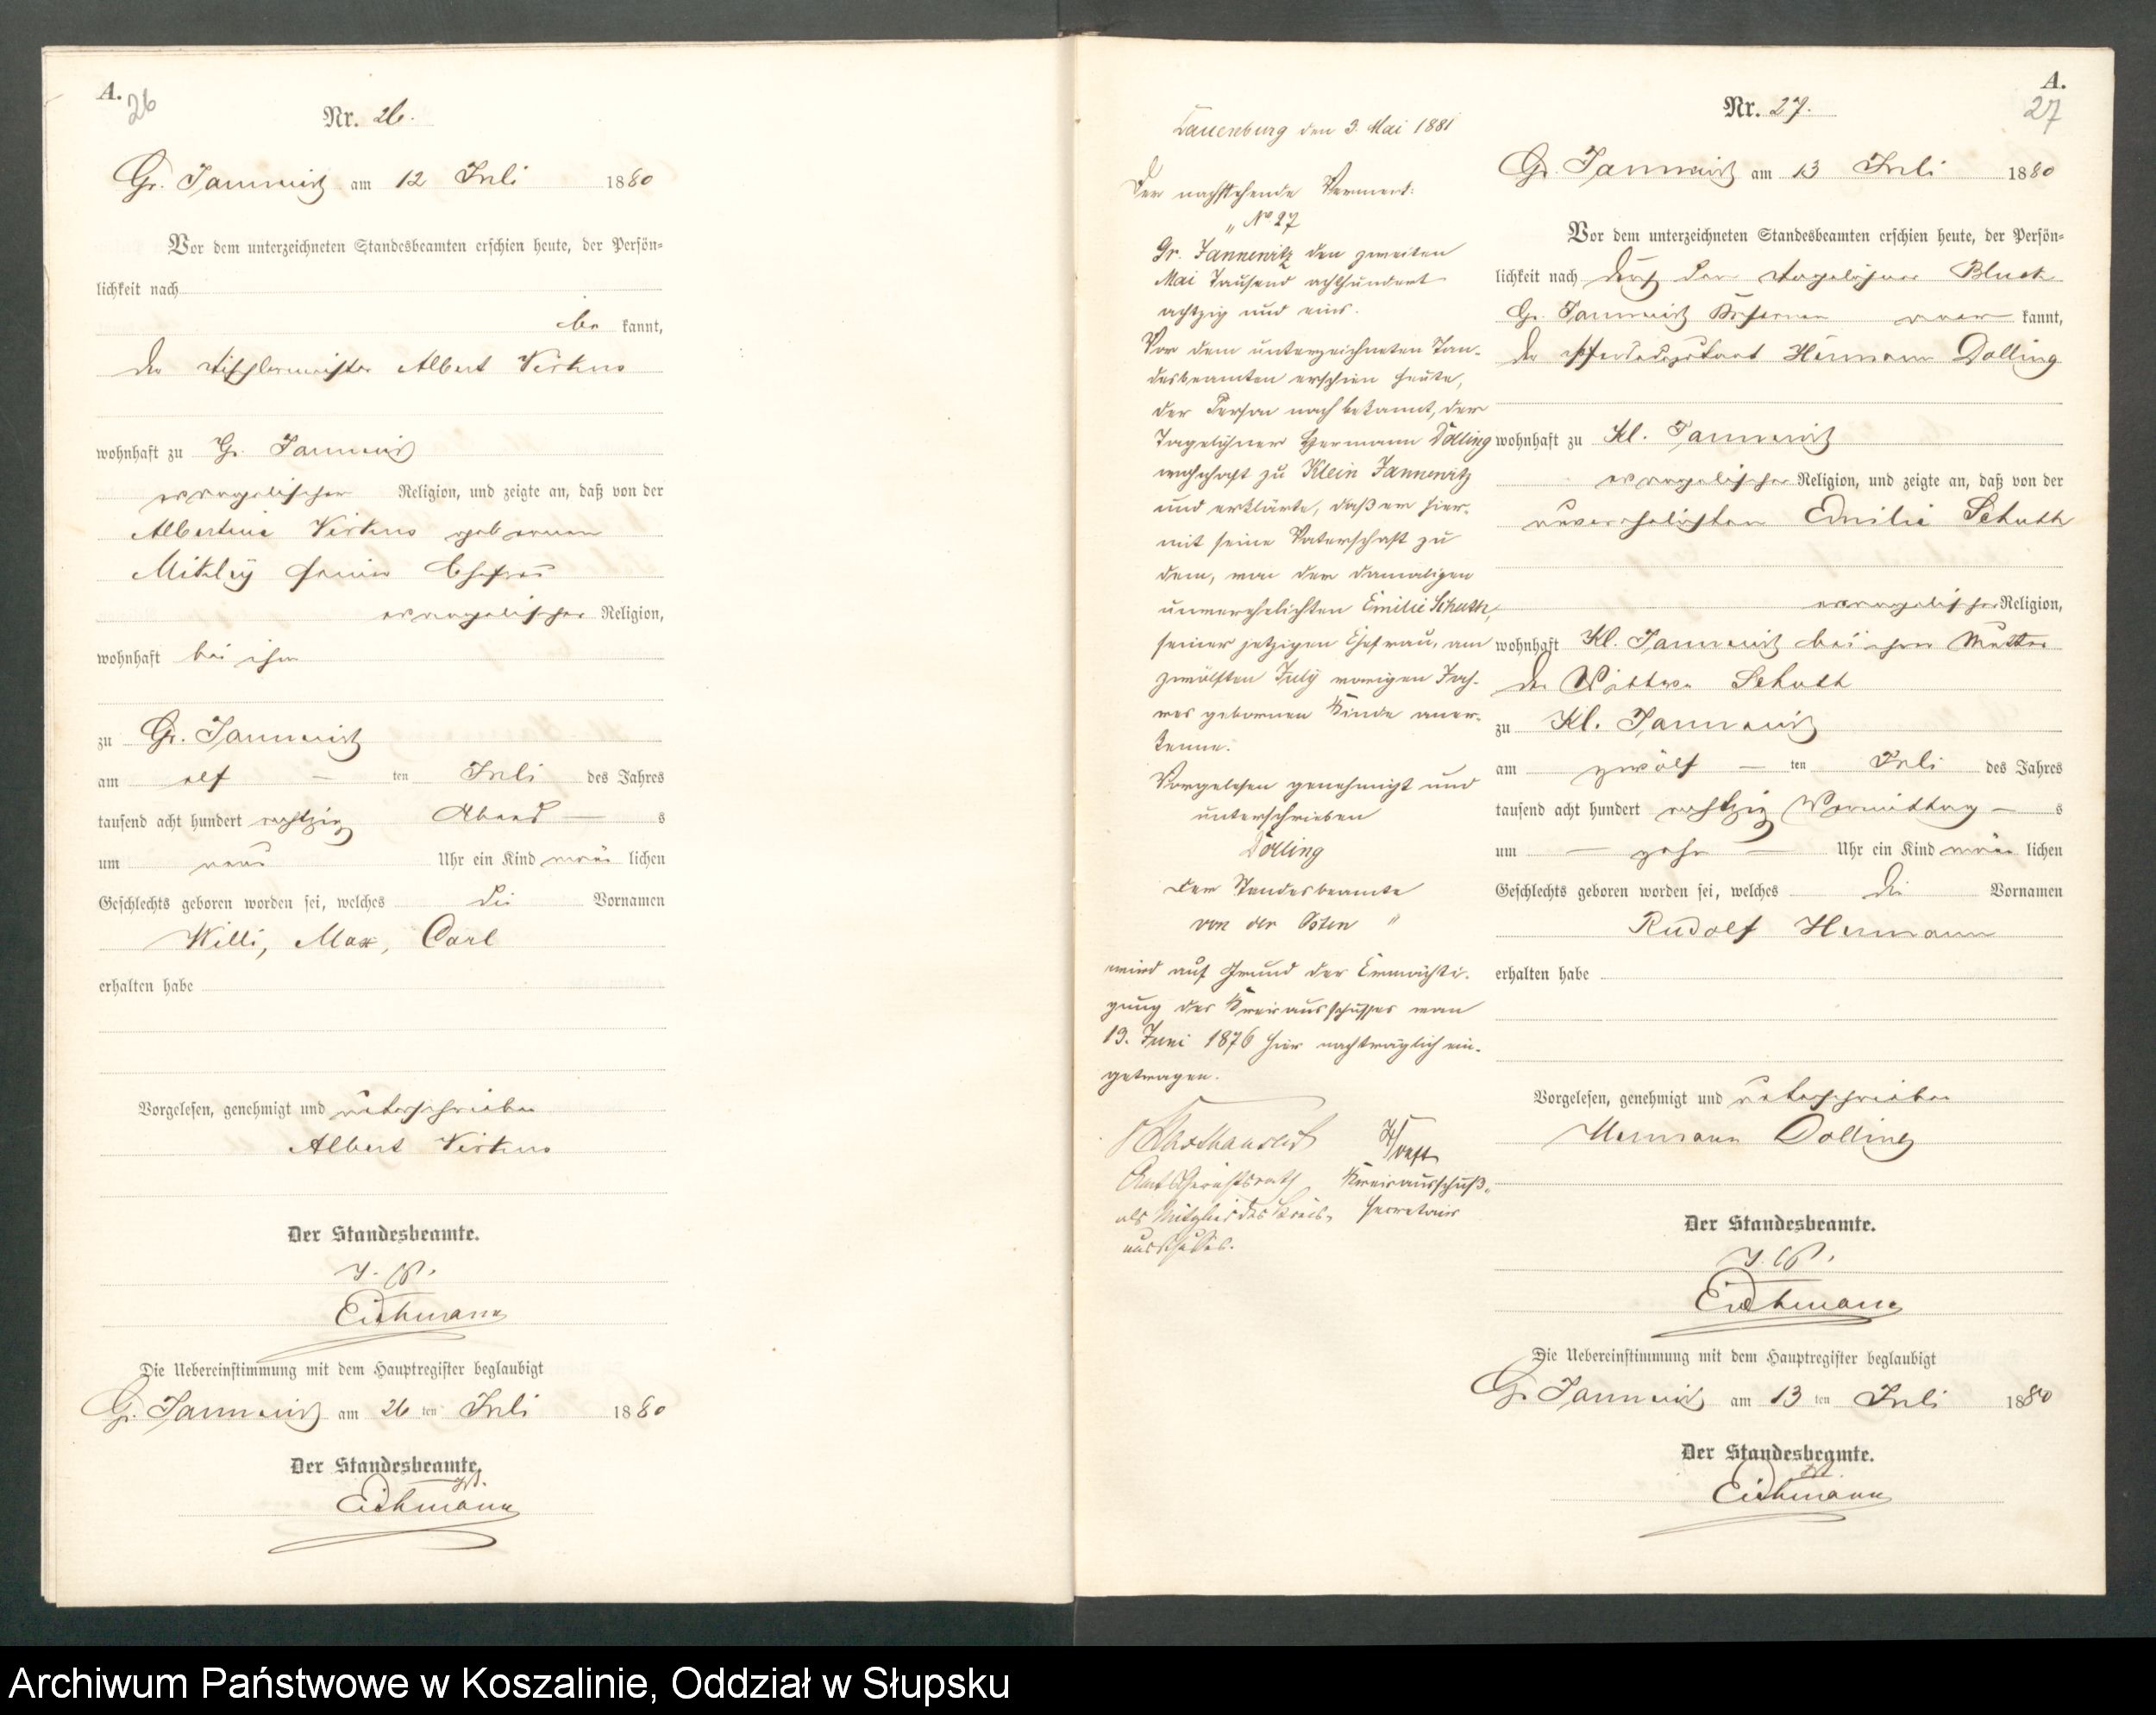 A.
26
Nr. 26.
Gr. Jannewitz am 12 Juli 1880
Vor dem unterzeichneten Standesbeamten erschien heute, der Persön-
lichkeit nach
be kannt,
der Tischlermeister Albert Virkus
wohnhaft zu Gr. Jannewitz
evangelischer Religion, und zeigte an, daß von der
Albertine Virkus geborenen
seiner Ehefrau
evangelischer Religion,
wohnhaft bei ihm
zu Gr. Jannewitz
am elf ten Juli des Jahres
tausend acht hundert achtzig Abend s
um neun Uhr ein Kind männ lichen
Geschlechts geboren worden sei, welches die Vornamen
Willi, Max, Carl
erhalten habe
Vorgelesen, genehmigt und unterschrieben
Albert Virkus
Der Standesbeamte.
I. V.
Eichmann
Die Uebereinstimmung mit dem Hauptregister beglaubigt
Gr. Jannewitz am 26 ten Juli 1880
Der Standesbeamte.
I.V.
Eichmann
Lauenburg den 3. Mai 1881
Der nachstehende Vermerk:
„No 27
Gr. Jannewitz den zweiten
Mai Tausend achthundert
achtzig und eins.
Vor dem unterzeichneten Stan-
desbeamten erschien heute,
der Person nach bekannt, der
Tagelöhner Hermann Dolling
wohnhaft zu Klein Jannewitz
und erklärte, daß er hier-
mit seine Vaterschaft zu
dem, von der damaligen
unverehelichten Emilie Schutth,
seiner jetzigen Ehefrau, am
zwölften July vorigen Jah-
res gebornen Kinde aner-
kenne.
Vorgelesen genehmigt und
unterschrieben
Dolling
Der Standesbeamte
von der Osten "
wird auf Grund der Ermächti-
gung des Kreisausschusses vom
13. Juni 1876 hier nachträglich ein-
getragen.
Kraft
Amtsgerichtsrath Kreisausschuß-
als Mitglied des Kreis- Secretair
ausschusses.
A.
27
Nr. 27.
Gr. Jannewitz am 13 Juli 1880
Vor dem unterzeichneten Standesbeamten erschien heute, der Persön-
lichkeit nach durch den Tagelöhner
Gr. Jannewitz kannt,
der Hermann Dolling
wohnhaft zu Kl. Jannewitz
evangelischer Religion, und zeigte an, daß von der
unverehelichten Emilie Schuth
evangelischer Religion,
wohnhaft Kl. Jannewitz bei ihrer Mutter
der Wittwe Schuth
zu Kl. Jannewitz
am zwölf ten Juli des Jahres
tausend acht hundert achtzig Vormittag s
um zehn Uhr ein Kind männ lichen
Geschlechts geboren worden sei, welches die Vornamen
Rudolf Hermann
erhalten habe
Vorgelesen, genehmigt und unterschrieben
Hermann Dolling
Der Standesbeamte.
I. V.
Eichmann
Die Uebereinstimmung mit dem Hauptregister beglaubigt
Gr. Jannewitz am 13 ten Juli 1880
Der Standesbeamte.
I.V.
Eichmann
Archiwum Państwowe w Koszalinie, Oddział w Słupsku